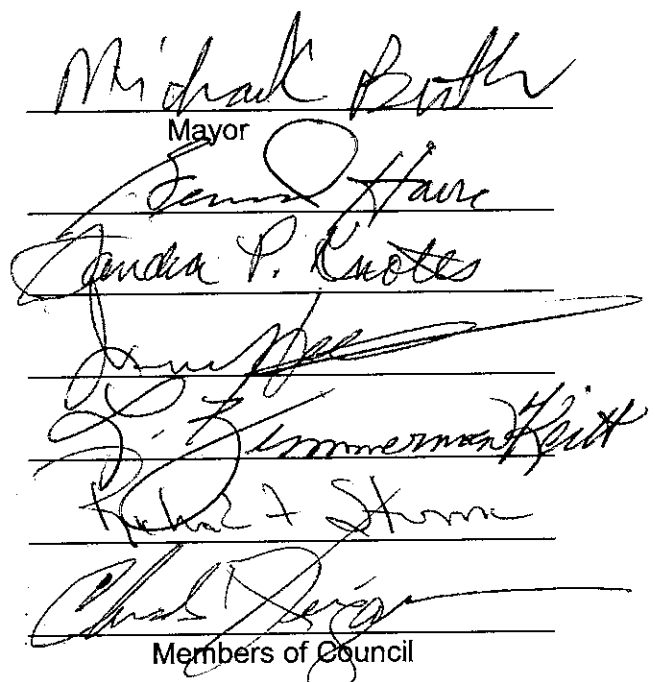 Michael Butler
Mayor
Haire
Sandra P. Knotts
L. Zimmerman Keitt
Richard F Stroman
Charles
Members of Council